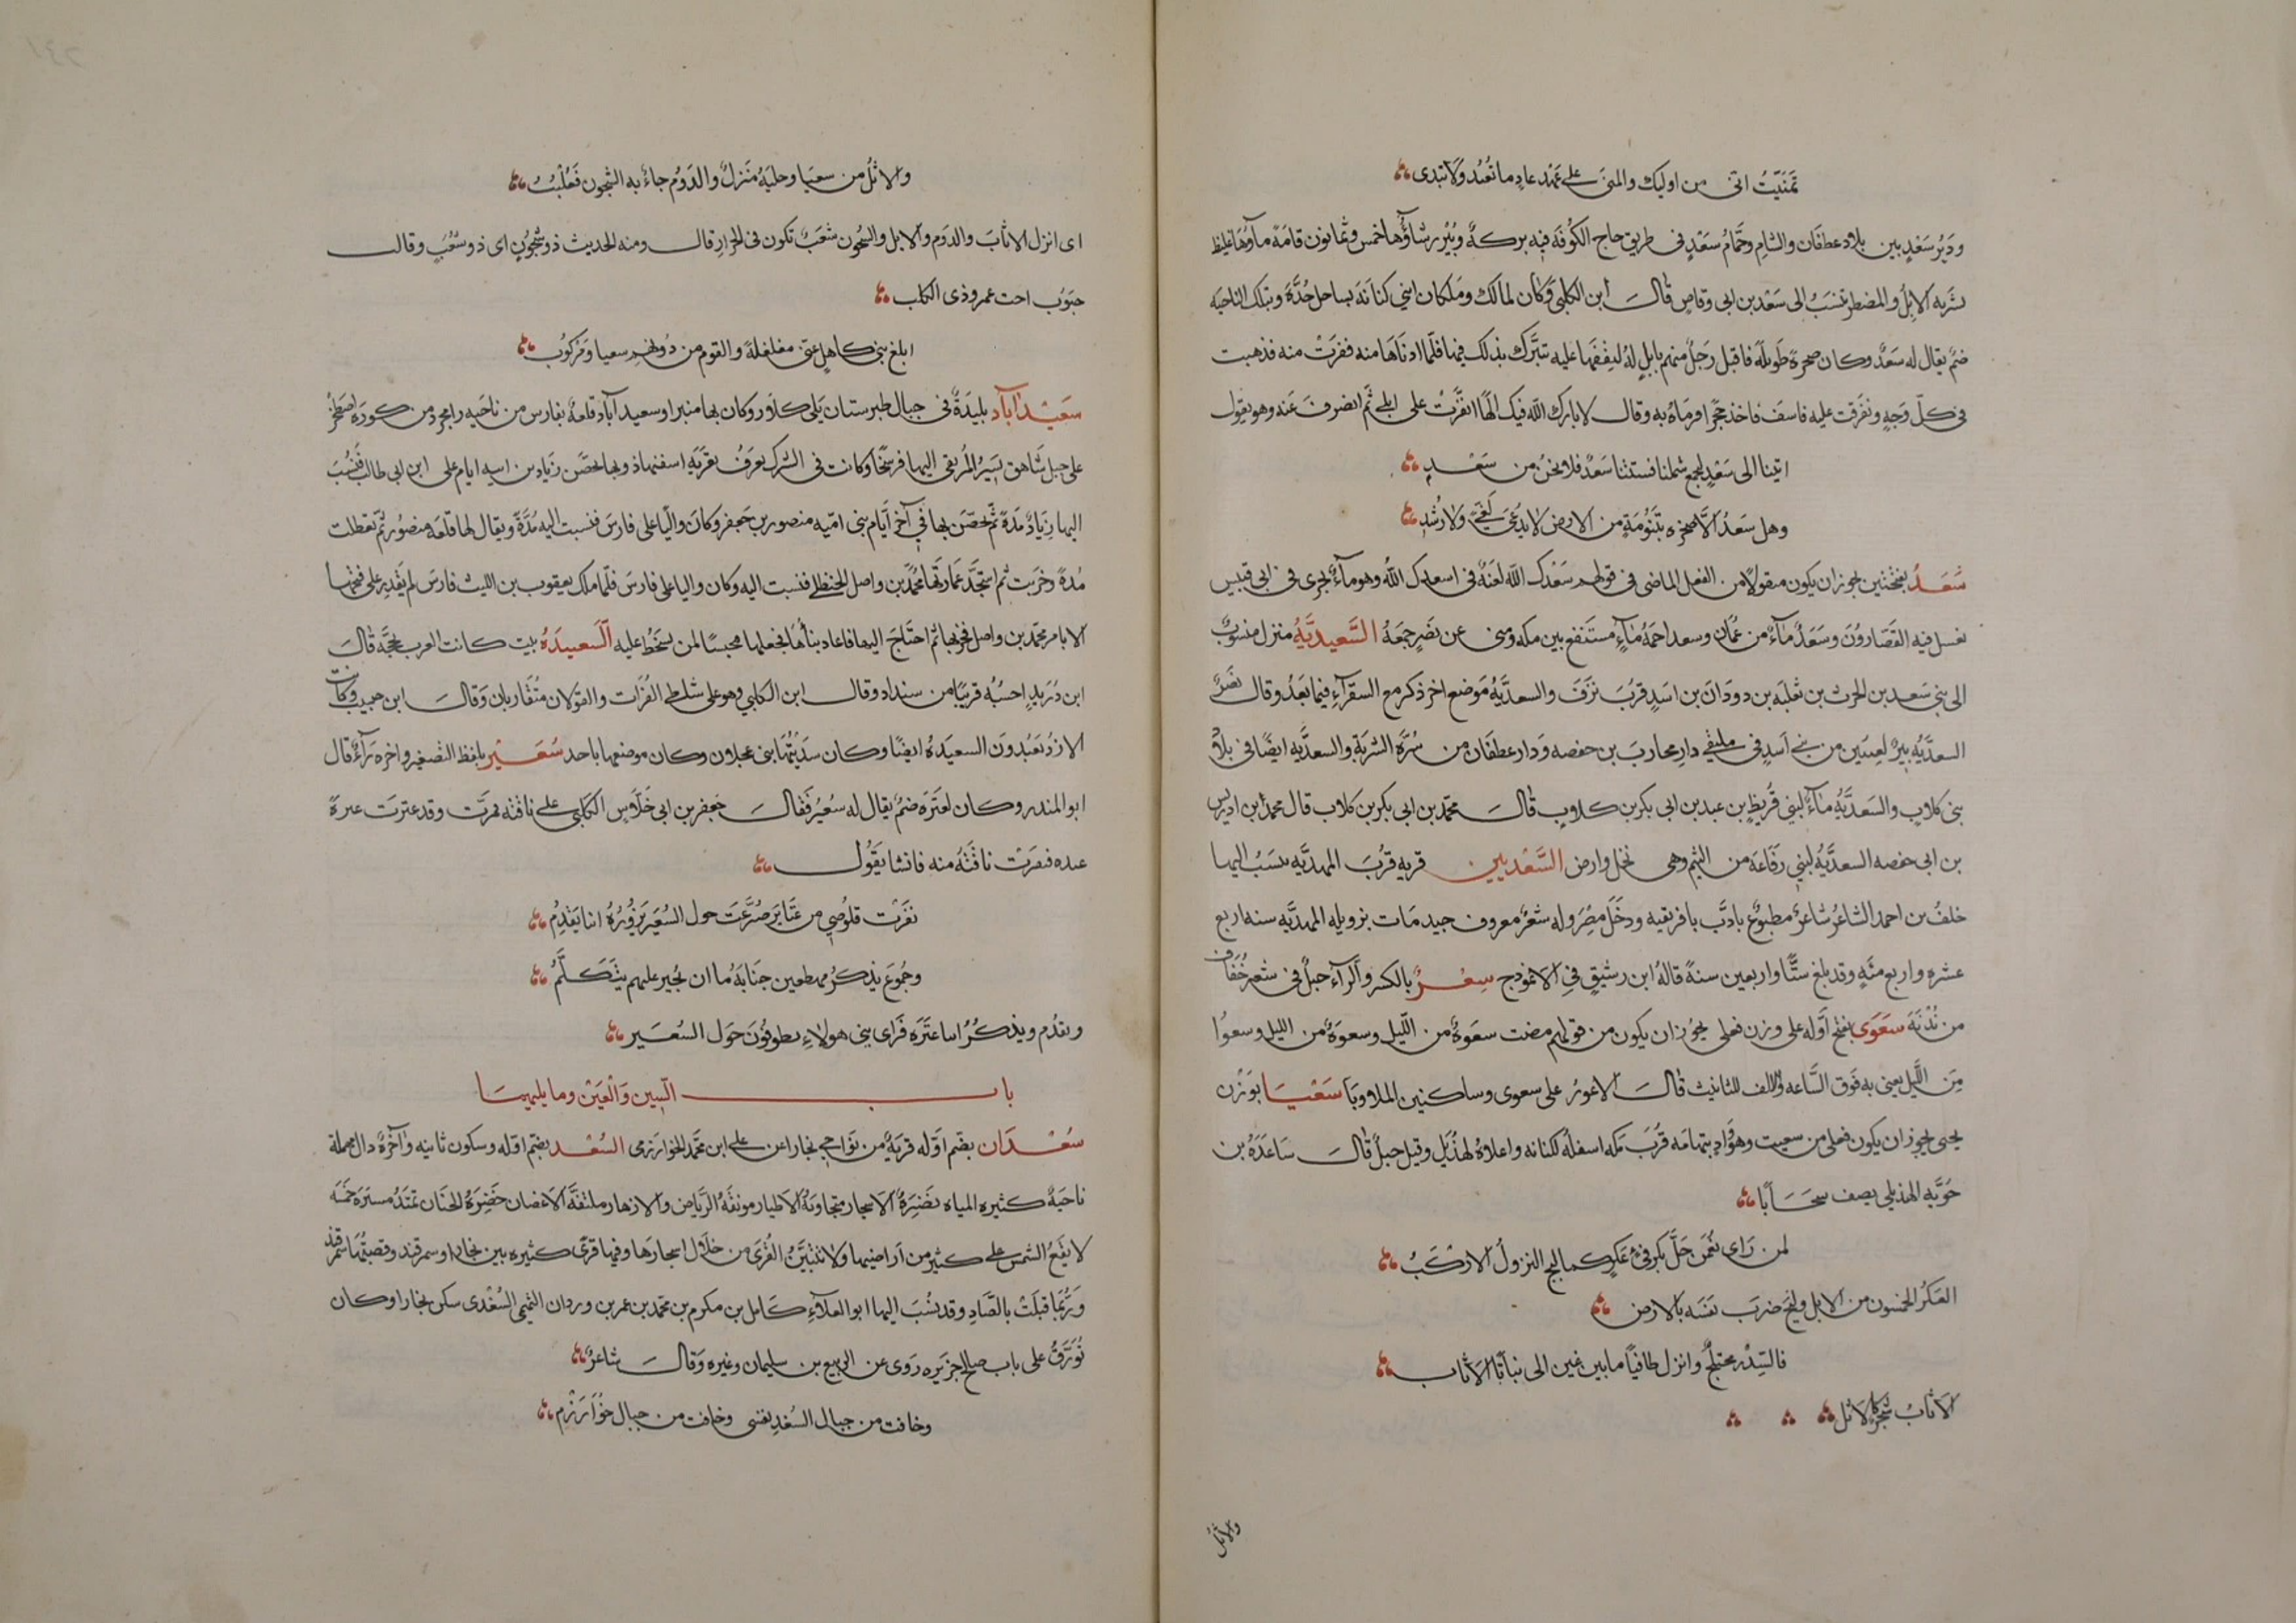 تمنيت اني من اوليك والمنى على عهد عاد ما تعد ولا تبدى
ودير سعد بين بلاد عطفان والشام وحمام سعد في طريق حاج الكوفه فيه بركة وبير رشاؤها خمس وثمانون قامة مآؤها غليظ
يشربه الابل والمضطر تنسب الى سعد بن ابى وقاص قال ابن الكلبي وكان لمالك وملكان ابني كنانة بساحل جدة وبتلك الناحيه
ضم يقال له سعد وكان صخرة طويله فاقبل رجل منهم بابل له ليقفها عليه تتبرك بذلك فيها فلما ادناها منه فنفرت منه فذهبت
في كل وجه وتفرقت عليه فاسف فاخذ حجرا فرماه به وقال لا بارك الله فيك الها انفرت على ابلي ثم انصرف عنه وهو يقول
اتينا الى سعد ليجمع شملنا فستتنا سعد فلا نحن من سعد
وهل سعد الا صخره بتنومة من الارض لا يدعى لغي ولا رشد
سعد بفتحتين يجوز ان يكون منقولا من الفعل الماضى فى قولهم سعدك الله لغة في اسعدك الله وهو مآء يجرى في ابى قبيس
يغسل فيه القصارون وسعد مآء من عمان وسعد احمة مآء مستنقع بين مكه ومنى عن نصر جمعه السعيدية منزل منسوب
الى بني سعد بن الحرث بن ثعلبه بن دودان بن اسد قرب نزف والسعدية موضع اخر ذكر مع السقرآء فيما بعد وقال نصر
السعدية بير لعبسين من بني اسد فى ملتقى دار محارب بن حفصه ودار عطفان من سرة الشربة والسعديه ايضا فى بلاد
بنى كلاب والسعدية مآء لبني قريظ بن عبد بن ابى بكر بن كلاب قال محمد بن ابى بكر بن كلاب قال محمد ابن ادريس
بن ابى حفصه السعدية لبني رفاعه من التيم وهى نخل وارض السعديين قريه قرب المهديه ينسب اليها
خلف بن احمد الشاعر شاعر مطبوع بادب بافريقيه ودخل مصر وله شعر معروف جيد مات بزويله المهديه سنه اربع
عشره واربع مئه وقد بلغ ستا واربعين سنة قاله ابن رشيق في الانموذج سعر بالكسر والرآء جبل في شعر خفاف
من ندبة سعوى بفتح اوله على وزن فعلى يجوز ان يكون من قولهم مضت سعوة من الليل وسعوة من الليل وسعوا
من الليل يعنى به فوق الساعه والالف للتانيث قال الاعور على سعوى وساكنين الملاويا سعيا بوزن
يحيى يجوز ان يكون فعلى من سعيت وهو واد بتهامه قرب مكه اسفله لكنانه واعلاه لهذيل وقيل جبل قال ساعدة بن
جويه الهذلي يصف سحابا
لمن راى نعمن حل بكرفئ عكر كما لبج النزول الاركب
العكر الخمسون من الابل ولبج ضرب بنفسه بالارض
فالسدر مختلج وانزل طافيا ما بين عين الى نباتا الاثاب
الاثاب شجر كالاثل
والاثل
والاثل من سعيا وحلية منزل والدوم جاء به الشجون فعليب
اى انزل الاثاب والدوم والابل والشجون شعب تكون فى الحرار قال ومنه الحديث ذو شجون اى ذو شعب وقال
جنوب اخت عمرو ذى الكلب
ابلغ بني كاهل عني مغلغلة والقوم من دونهم سعيا ومركوب
سعيداباد بليدة فى جبال طبرستان يلى كلار وكان بها منبر او سعيد آباد قلعة بفارس من ناحيه رامجرد من كوره اصطخر
على جبل شاهق يسير المرتقى اليها فرسخا وكانت فى الشرك يعرف بقرية اسفنهاذ وبها تحصن زياد بن ابيه ايام على ابن ابى طالب فنسبت
اليها زياد مدة ثم تحصن بها في آخر ايام بنى اميه منصور بن جعفر وكان واليا على فارس فنسبت اليه مدة ويقال لها قلعه منصور ثم تعطلت
مدة وخربت ثم استجد عمارتها محمد بن واصل الحنظلي فنسبت اليه وكان واليا على فارس فلما ملك يعقوب بن الليث فارس لم يقدر على فتحها
الا بامر محمد بن واصل فخربها ثم احتاج اليها فاعاد بنآها فجعلها محبسا لمن يسخط عليه السعيدة بيت كانت العرب تحجه قال
ابن دريد احسبه قريبا من سنداد وقال ابن الكلبي وهو على شاطى الفرات والقولان متقاربان وقال ابن حبيب وكانت
الازد تعبدون السعيده ايضا وكان سدنتها بنى عجلان وكان موضعها باحد سعير بلفظ التصغير واخره رآء قال
ابو المنذر وكان لعنزه ضم يقال له سعير فقال جعفر بن ابى خلاس الكلبى على ناقته فمرت وقد عترت عنزة
عنده فنفرت ناقته منه فانشا يقول
نفرت قلوصي من عتاير صرعت حول السعير يزوره ابنا يقدم
وجموع يذكر مهطعين جنابه ما ان يجير عليهم بتكلم
ويقدم ويذكر ابنا عنزه فراى بنى هولاء يطوفون حول السعير
باب السين والعين وما يليهما
سعدان بضم اوله قرية من نواحي بخارا عن على ابن محمد الخوارزمى السغد بضم اوله وسكون ثانيه وآخره دال مهملة
ناحية كثيره المياه نضرة الاشجار متجاوبة الاطيار مونقة الرياض والازهار ملتفة الاغصان خضرة الجنان تمتد مسيرة خمسة
لا يقع الشمس على كثير من اراضيها ولا تتبين القرى من خلال اشجارها وفيها قرى كثيره بين بخارا وسمرقند وقصبتها سمرقند
وربما قيلت بالصاد وقد نسب اليها ابو العلآء كامل بن مكرم بن محمد بن عمر بن وردان التميمى السغدى سكن بخارا وكان
تورق على باب صالح جزيره روى عن الربيع بن سليمان وغيره وقال شاعر
وخافت من جبال السغد نفسى وخافت من جبال خوارزم